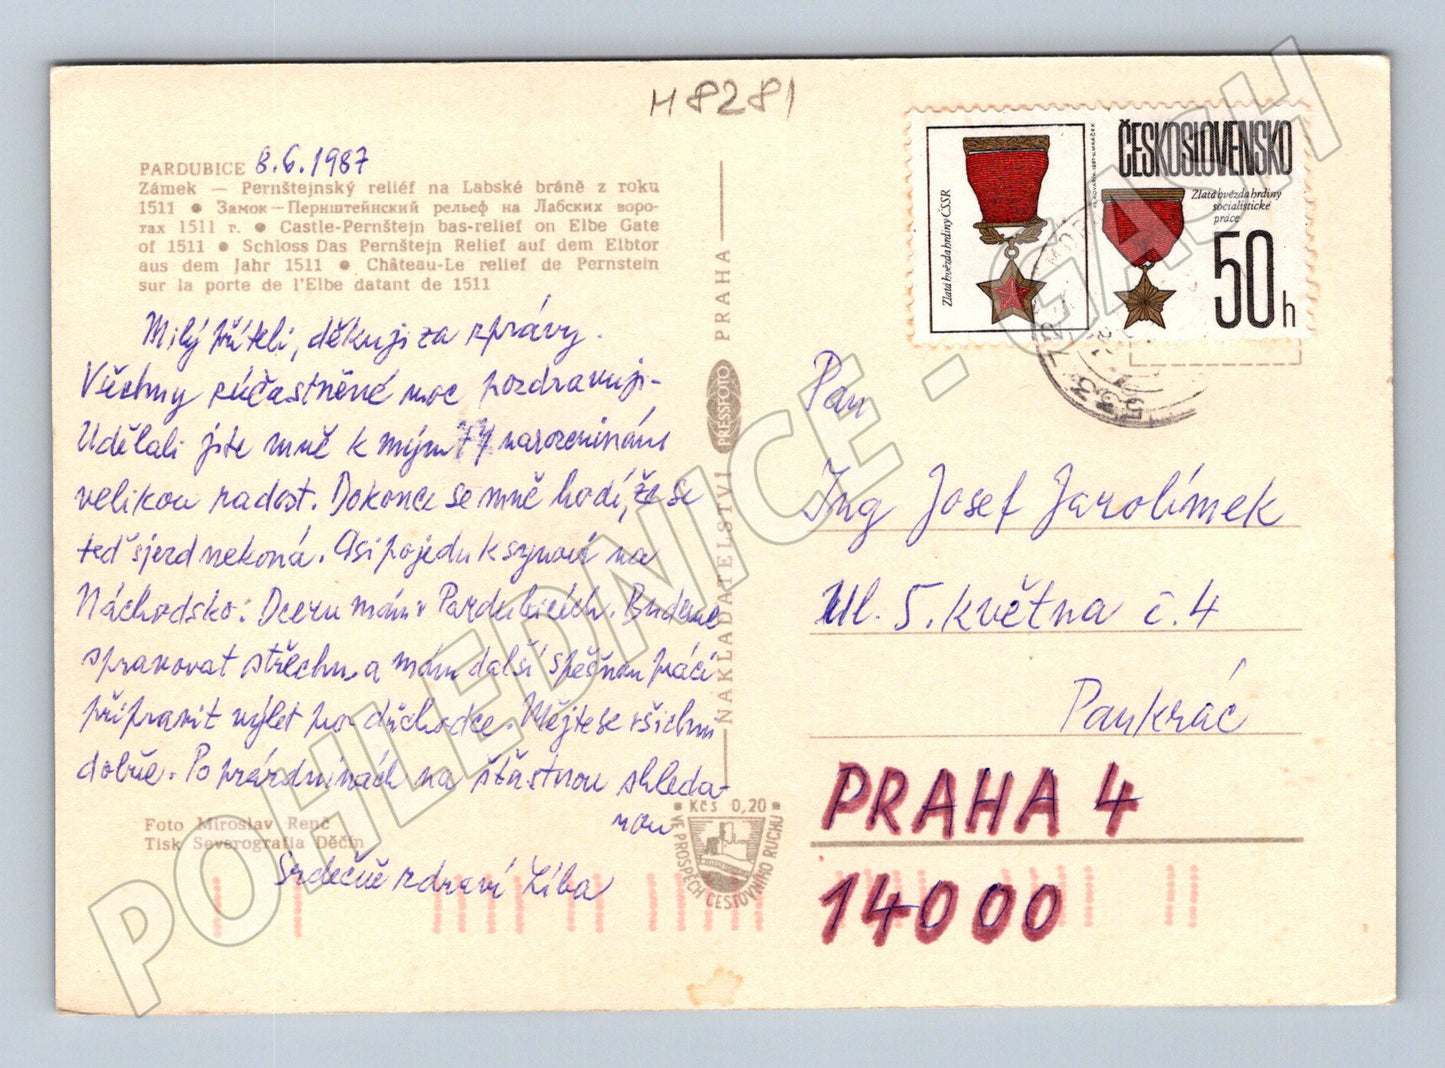 H 8281
PARDUBICE 8.6.1987
Zámek — Pernštejnský reliéf na Labské bráně z roku
1511 ● Замок — Пернштейнский рельеф на Лабских воро-
тах 1511 г. ● Castle-Pernštejn bas-relief on Elbe Gate
of 1511 ● Schloss Das Pernštejn Relief auf dem Elbtor
aus dem Jahr 1511 ● Château-Le relief de Pernstein
sur la porte de l'Elbe datant de 1511
Milý příteli, děkuji za zprávy.
Všechny zúčastněné moc pozdravuji.
Udělali jste mně k mým 77 narozeninám
velikou radost. Dokonce se mně hodí, že se
teď sjezd nekoná. Asi pojedu k synovi na
Náchodsko. Dceru mám v Pardubicích. Budeme
spravovat střechu a mám další spěšnou práci
připravit výlet pro důchodce. Mějte se všichni
dobře. Po prázdninách na šťastnou shleda-
nou
Srdečně zdraví Líba
Foto Miroslav Renč
Tisk Severografia Děčín
NAKLADATELSTVÍ PRESSFOTO PRAHA
Kčs 0,20
VE PROSPĚCH CESTOVNÍHO RUCHU
ČESKOSLOVENSKO
Zlatá hvězda hrdiny ČSSR
Zlatá hvězda hrdiny
socialistické
práce
50 h
Pan
Ing Josef Jarolímek
Ul. 5. května č. 4
Pankrác
PRAHA 4
14000
POHLEDNICE - CASH